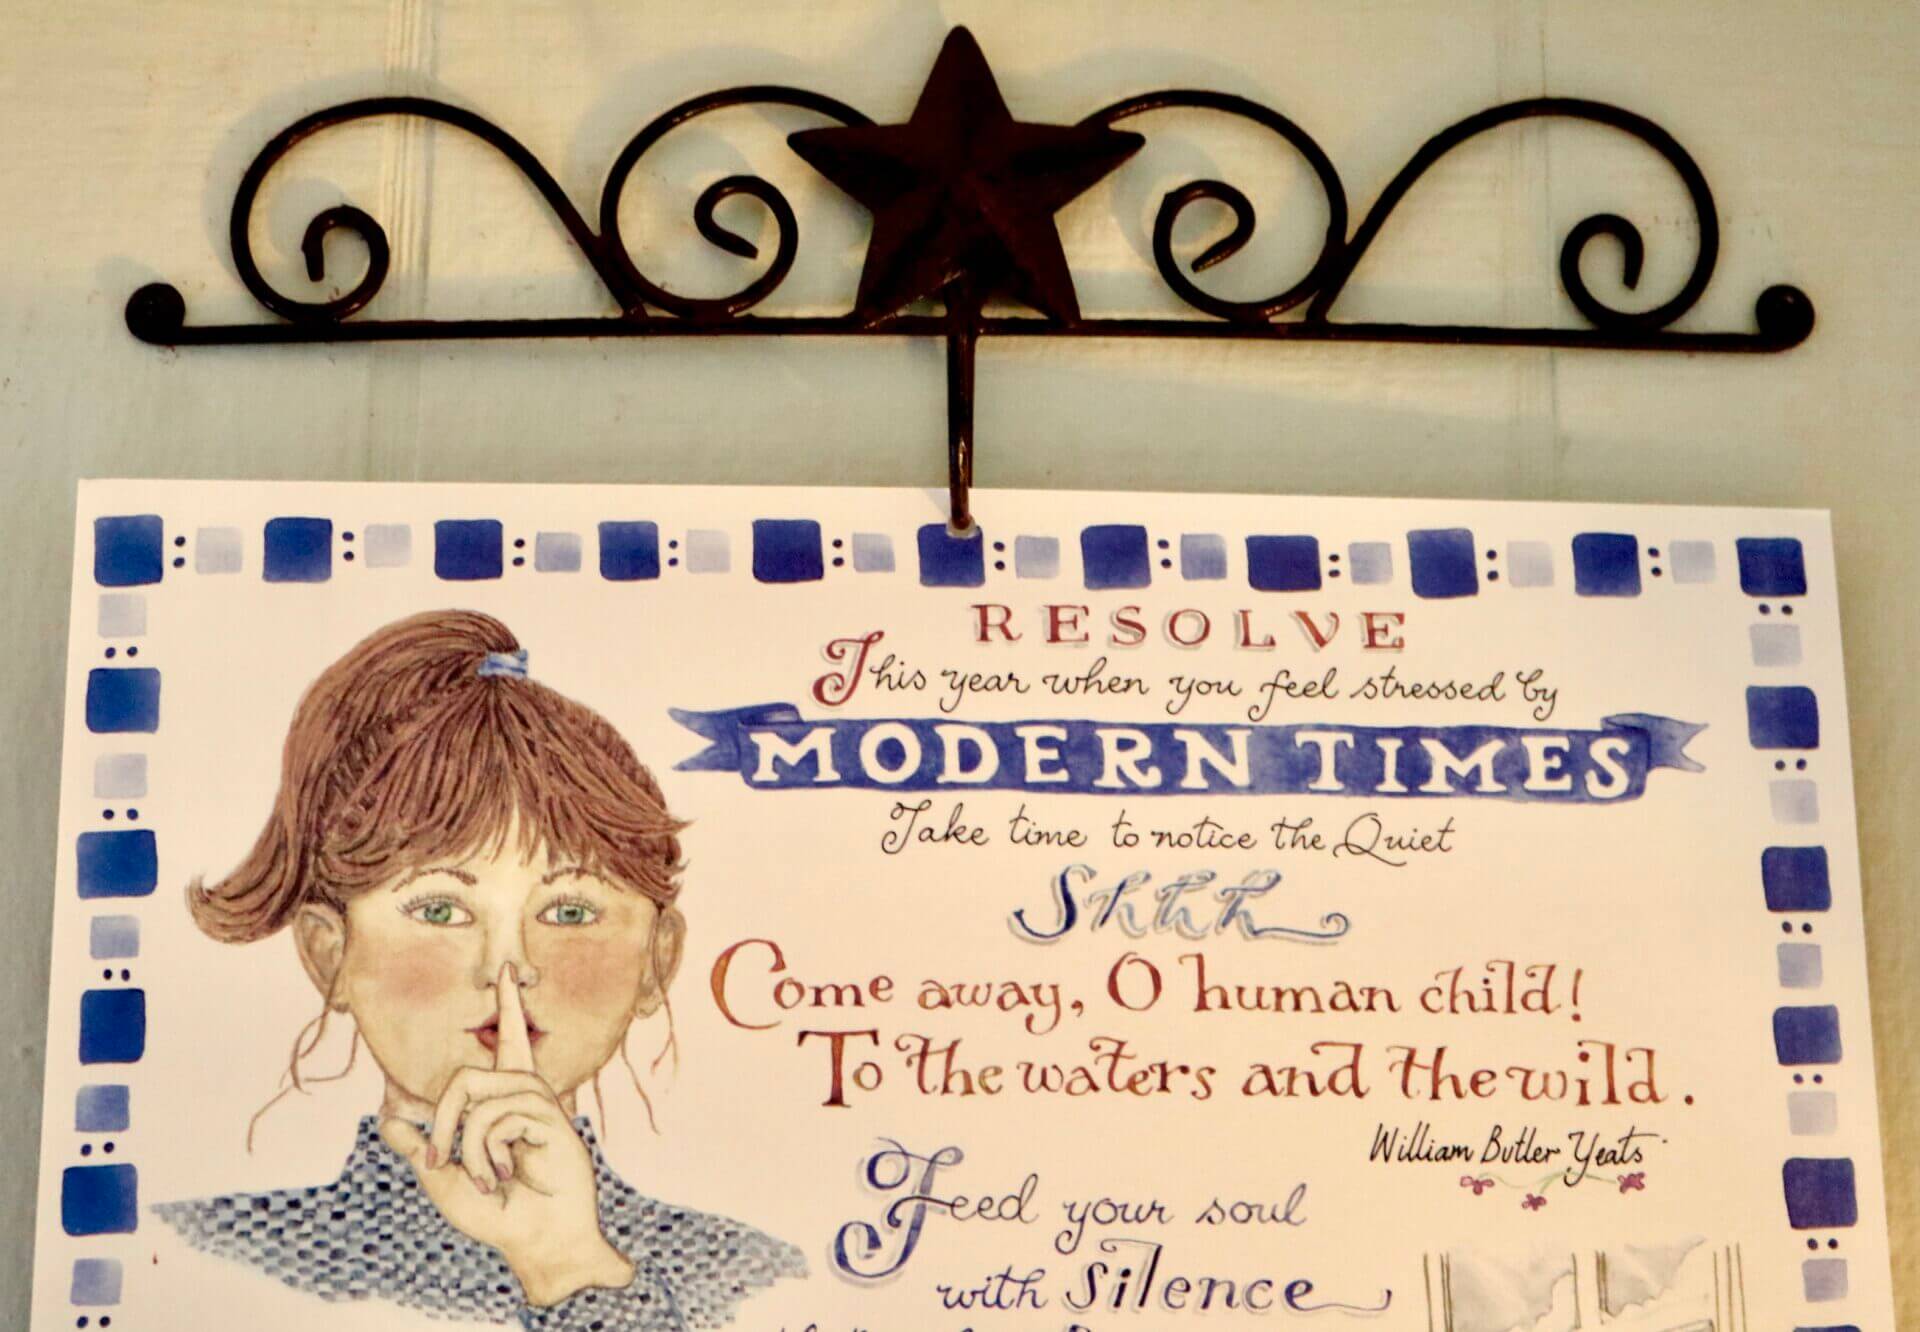 RESOLVE
This year when you feel stressed by
MODERN TIMES
Take time to notice the Quiet
Shhh
Come away, O human child!
To the waters and the wild.
William Butler Yeats
Feed your soul
with Silence